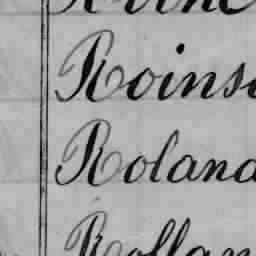 Roins
Roland
Rollan